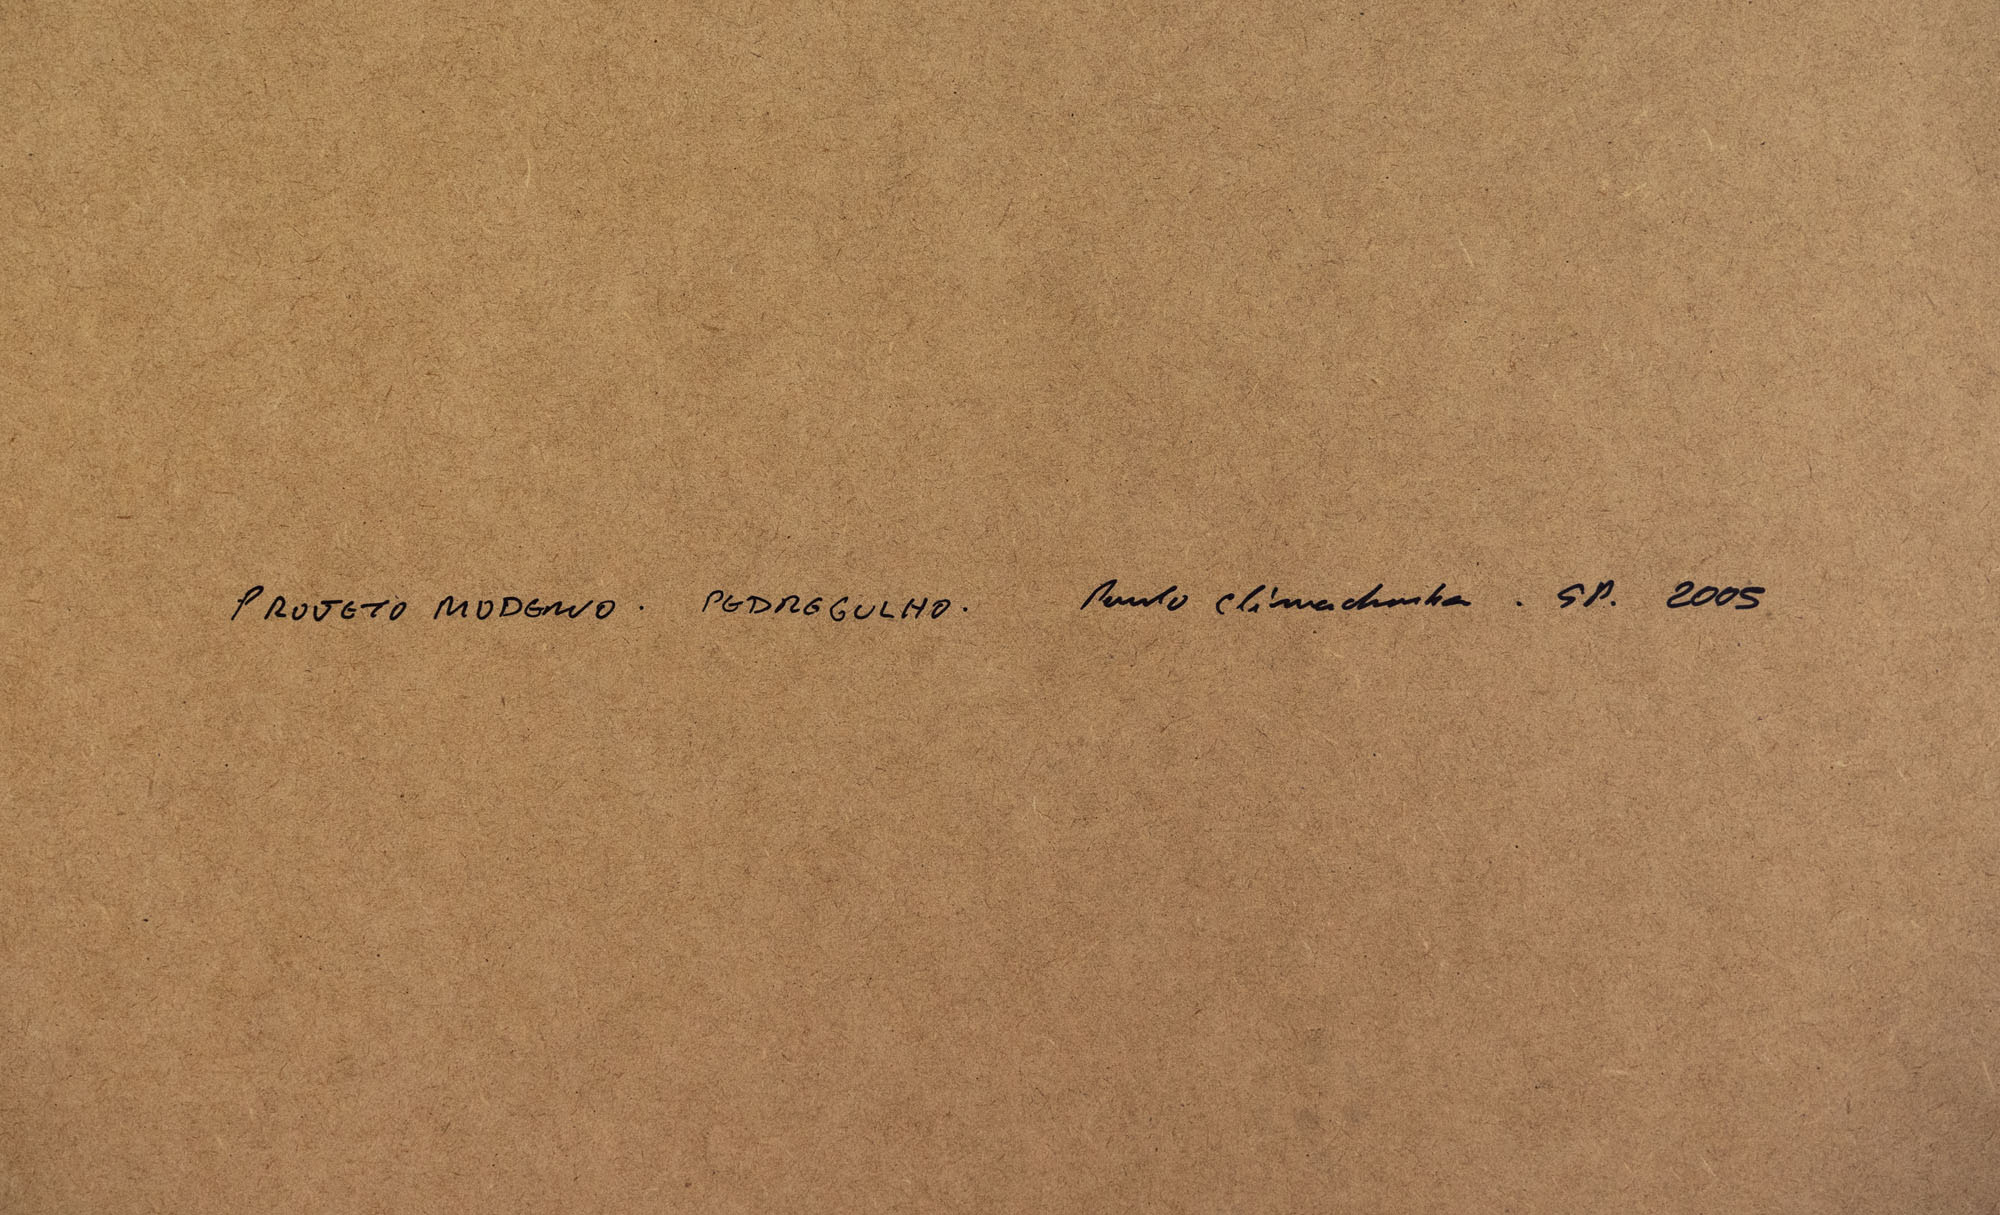 PROJETO MODERNO. PEDREGULHO. Paulo Climachauska. SP. 2005